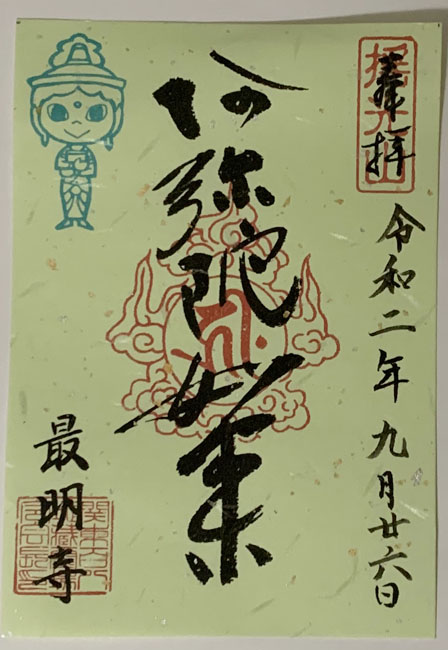 奉拝
令和二年九月廿六日
阿弥陀如来
最明寺